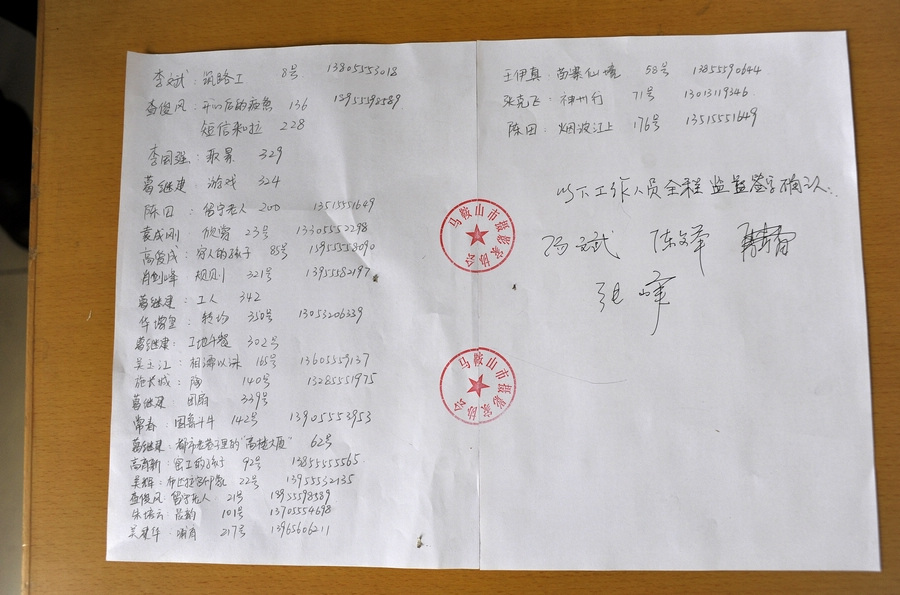 李文斌：筑路工 8号 13805553018
查俊风：开心后的疲惫 136
短信来啦 228
李国强：取暴 329
葛继建：游戏 324
陈田：留守老人 200 13515551649
袁成刚 欣赏 23号 13305552298
高俊成：穷人的孩子 85号 1395558090
肖剑峰：规则 321号 13955582197
葛继建：工人 342
华增奎：转灼 350号 13053206339
葛继建：工地午餐 302号
吴士江：相濡以沫 165号 13605559137
施长城：陶 140号 13285551975
葛继建：团购 339号
常春：困兽斗牛 142号 13905553953
葛继建：都市老巷子里的“高楼大厦” 62号
高育新：窑工的孩子 92号 13855555565
吴辉：布达拉宫印象 22号 13955532135
查俊风：留守老人 21号 13955598589
朱培云：吕韵 101号 13705554698
吴建华：哺育 217号 13965606211
王伊真：苗寨仙境 58号 13855590644
张克飞：神州行 71号 13013119346
陈田：烟波江上 176号 13515551649
以下工作人员全程监督签字确认：
冯文斌 陈文革
张峰
马鞍山市摄影家协会
马鞍山市摄影家协会